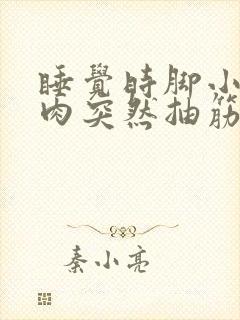 睡覺時脚小
肉突然抽筋
秦小亮